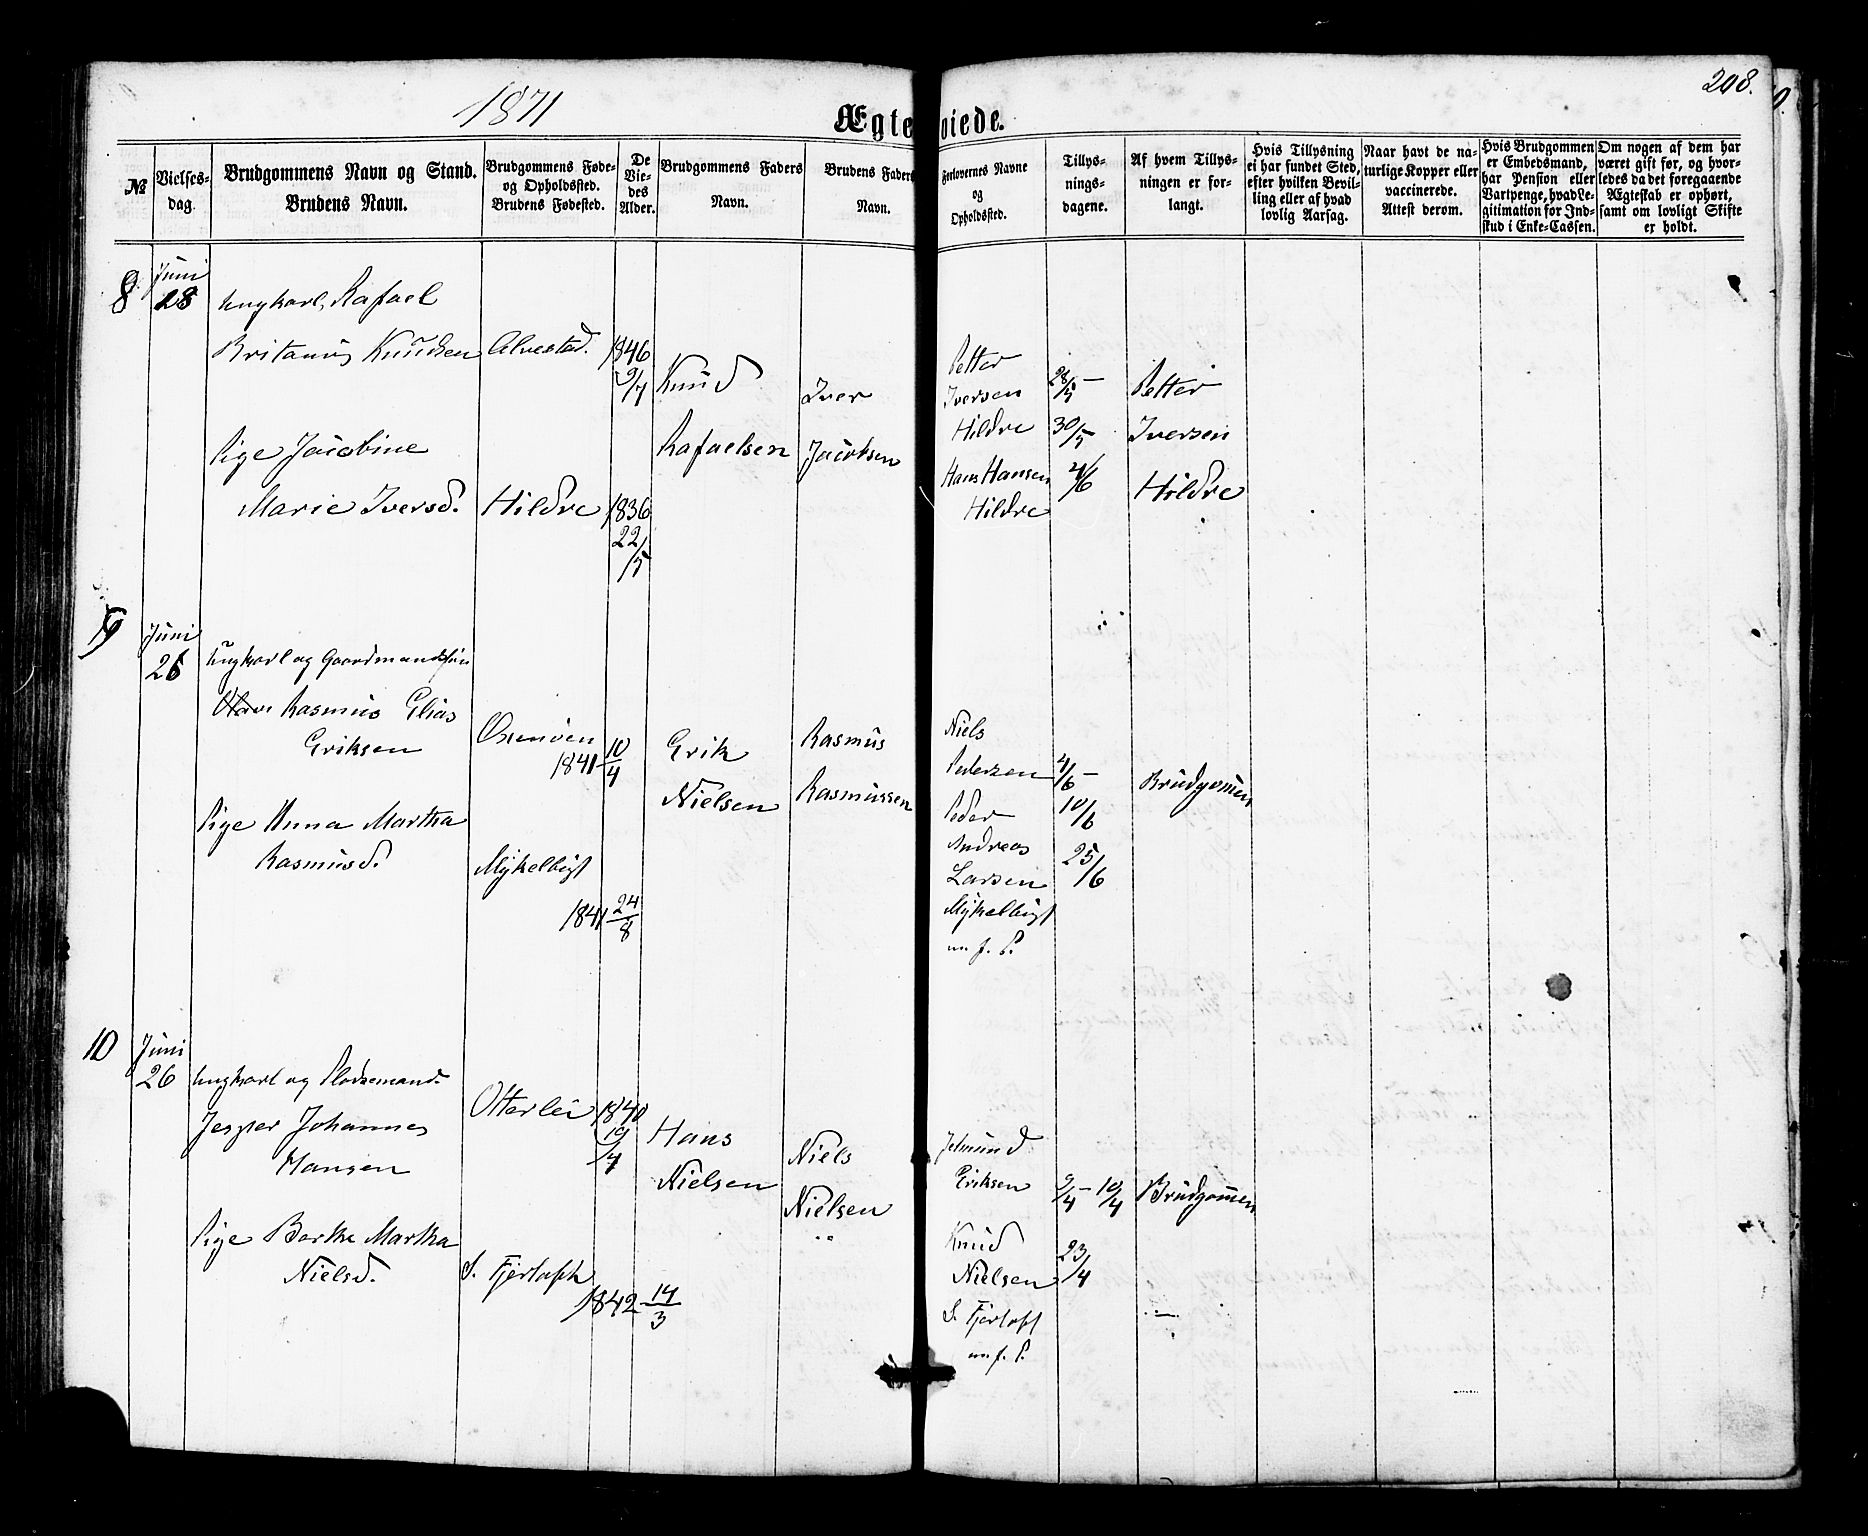 1871
208.
Ægteviede.
№
Vielses-
dag.
Brudgommens Navn og Stand.
Brudens Navn.
Brudgommens Føde-
og Opholdssted.
Brudens Fødested.
De
Vie-
des
Alder.
Brudgommens Faders
Navn.
Brudens Faders
Navn.
Forlovernes Navne
og
Opholdssted.
Tillys-
nings-
dagene.
Af hvem Tillys-
ningen er for-
langt.
Hvis Tillysning
ei har fundet Sted,
efter hvilken Bevil-
ling eller af hvad
lovlig Aarsag.
Naar havt de na-
turlige Kopper eller
vaccinerede.
Attest derom.
Hvis Brudgommen
er Embedsmand,
har Pension eller
Vartpenge, hvad Le-
gitimation for Ind-
skud i Enke-Cassen.
Om nogen af dem har
været gift før, og hvor-
ledes da det foregaaende
Ægteskab er ophørt,
samt om lovligt Skifte
er holdt.
8
Juni
28
Ungkarl, Rafael
Britanus Knudsen
Alvestad.
1846
9/7
Knud
Rafaelsen
Iver
Jacobsen
Pige Jacobine
Marie Iversd.
Hildre
1836
22/5
Petter
Iversen
Hildre
Hans Hansen
Hildre
28/5 -
30/5
4/6
Petter
Iversen
Hildre
9
Juni
26
Ungkarl og Gaardmandssøn
Rasmus Elias
Eriksen
1841 10/4
Erik
Nielsen
Rasmus
Rasmussen
Pige Anna Martha
Rasmusd.
Mykelbugt
1841 24/8
Niels
Pedersen
Peder
Andreas
Larsen
Mykelbugt
4/6 -
10/6
25/6
Brudgomen
10
Juni
26
Ungkarl og
Jesper Johannes
Hansen
Otterlei
1840
19/4
Hans
Nielsen
Niels
Nielsen
Pige Berthe Martha
Nielsd.
S. Fjertoft
1842 14/3
Jetmund
Eriksen
Knud
Nielsen
S. Fjertoft
9/4 - 10/4
23/4
Brudgomen